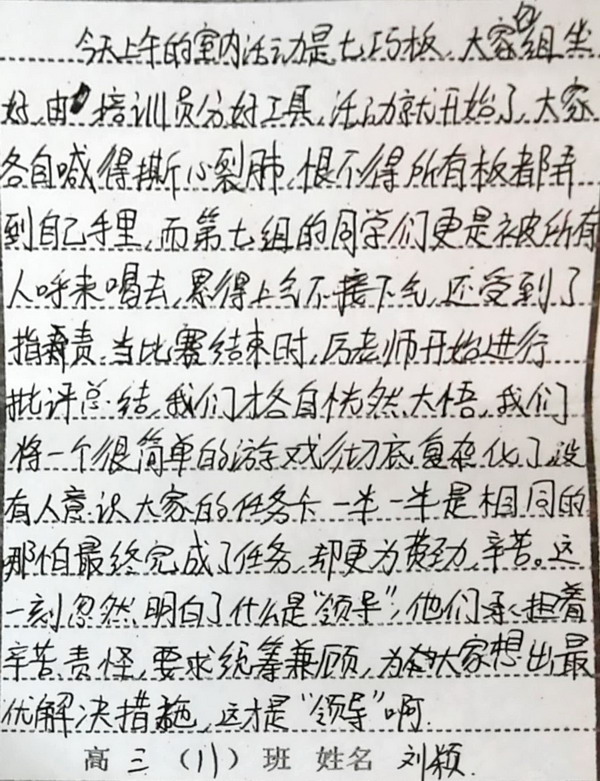 今天上午的室内活动是七巧板,大家分组坐
好,由培训员分好工具,活动就开始了,大家
各自喊得撕心裂肺,恨不得所有板都弄
到自己手里,而第七组的同学们更是被所有
人呼来喝去,累得上气不接下气,还受到了
指责,当比赛结束时,厉老师开始进行
批评总结,我们才各自恍然大悟,我们
将一个很简单的游戏彻底复杂化了,没
有人意识大家的任务卡一半一半是相同的
那怕最终完成了任务,却更为费劲,辛苦。这
一刻忽然明白了什么是“领导”,他们承担着
辛苦责怪,要求统筹兼顾,为大家想出最
优解决措施,这才是“领导”啊.
高三(11)班 姓名 刘颖.